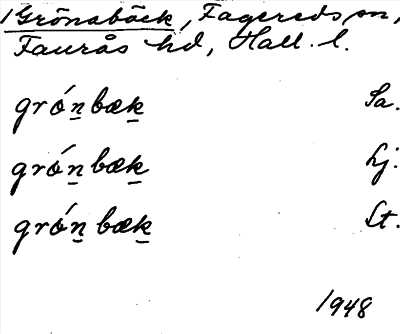 1 Grönabäck, Fagereds sn,
Faurås hd, Hall. l.
grǿn̲bæk̲ Sa.
grǿn̲bæk̲ Lj.
grǿn̲bæk̲ St.
1948